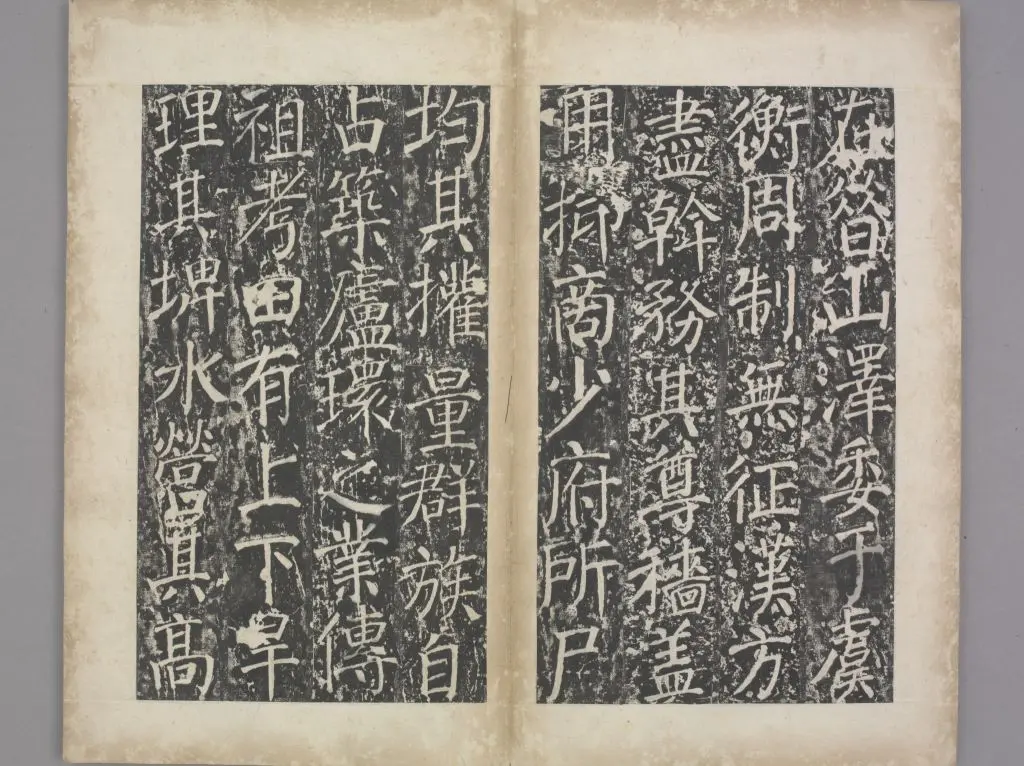 在昔山澤委于虞
衡周制無征漢方
盡幹務其尊穡盖
用抑商少府所尸
均其攉量群族自
占築廬環之業傳
祖考田有上下旱
理其埤水營其高